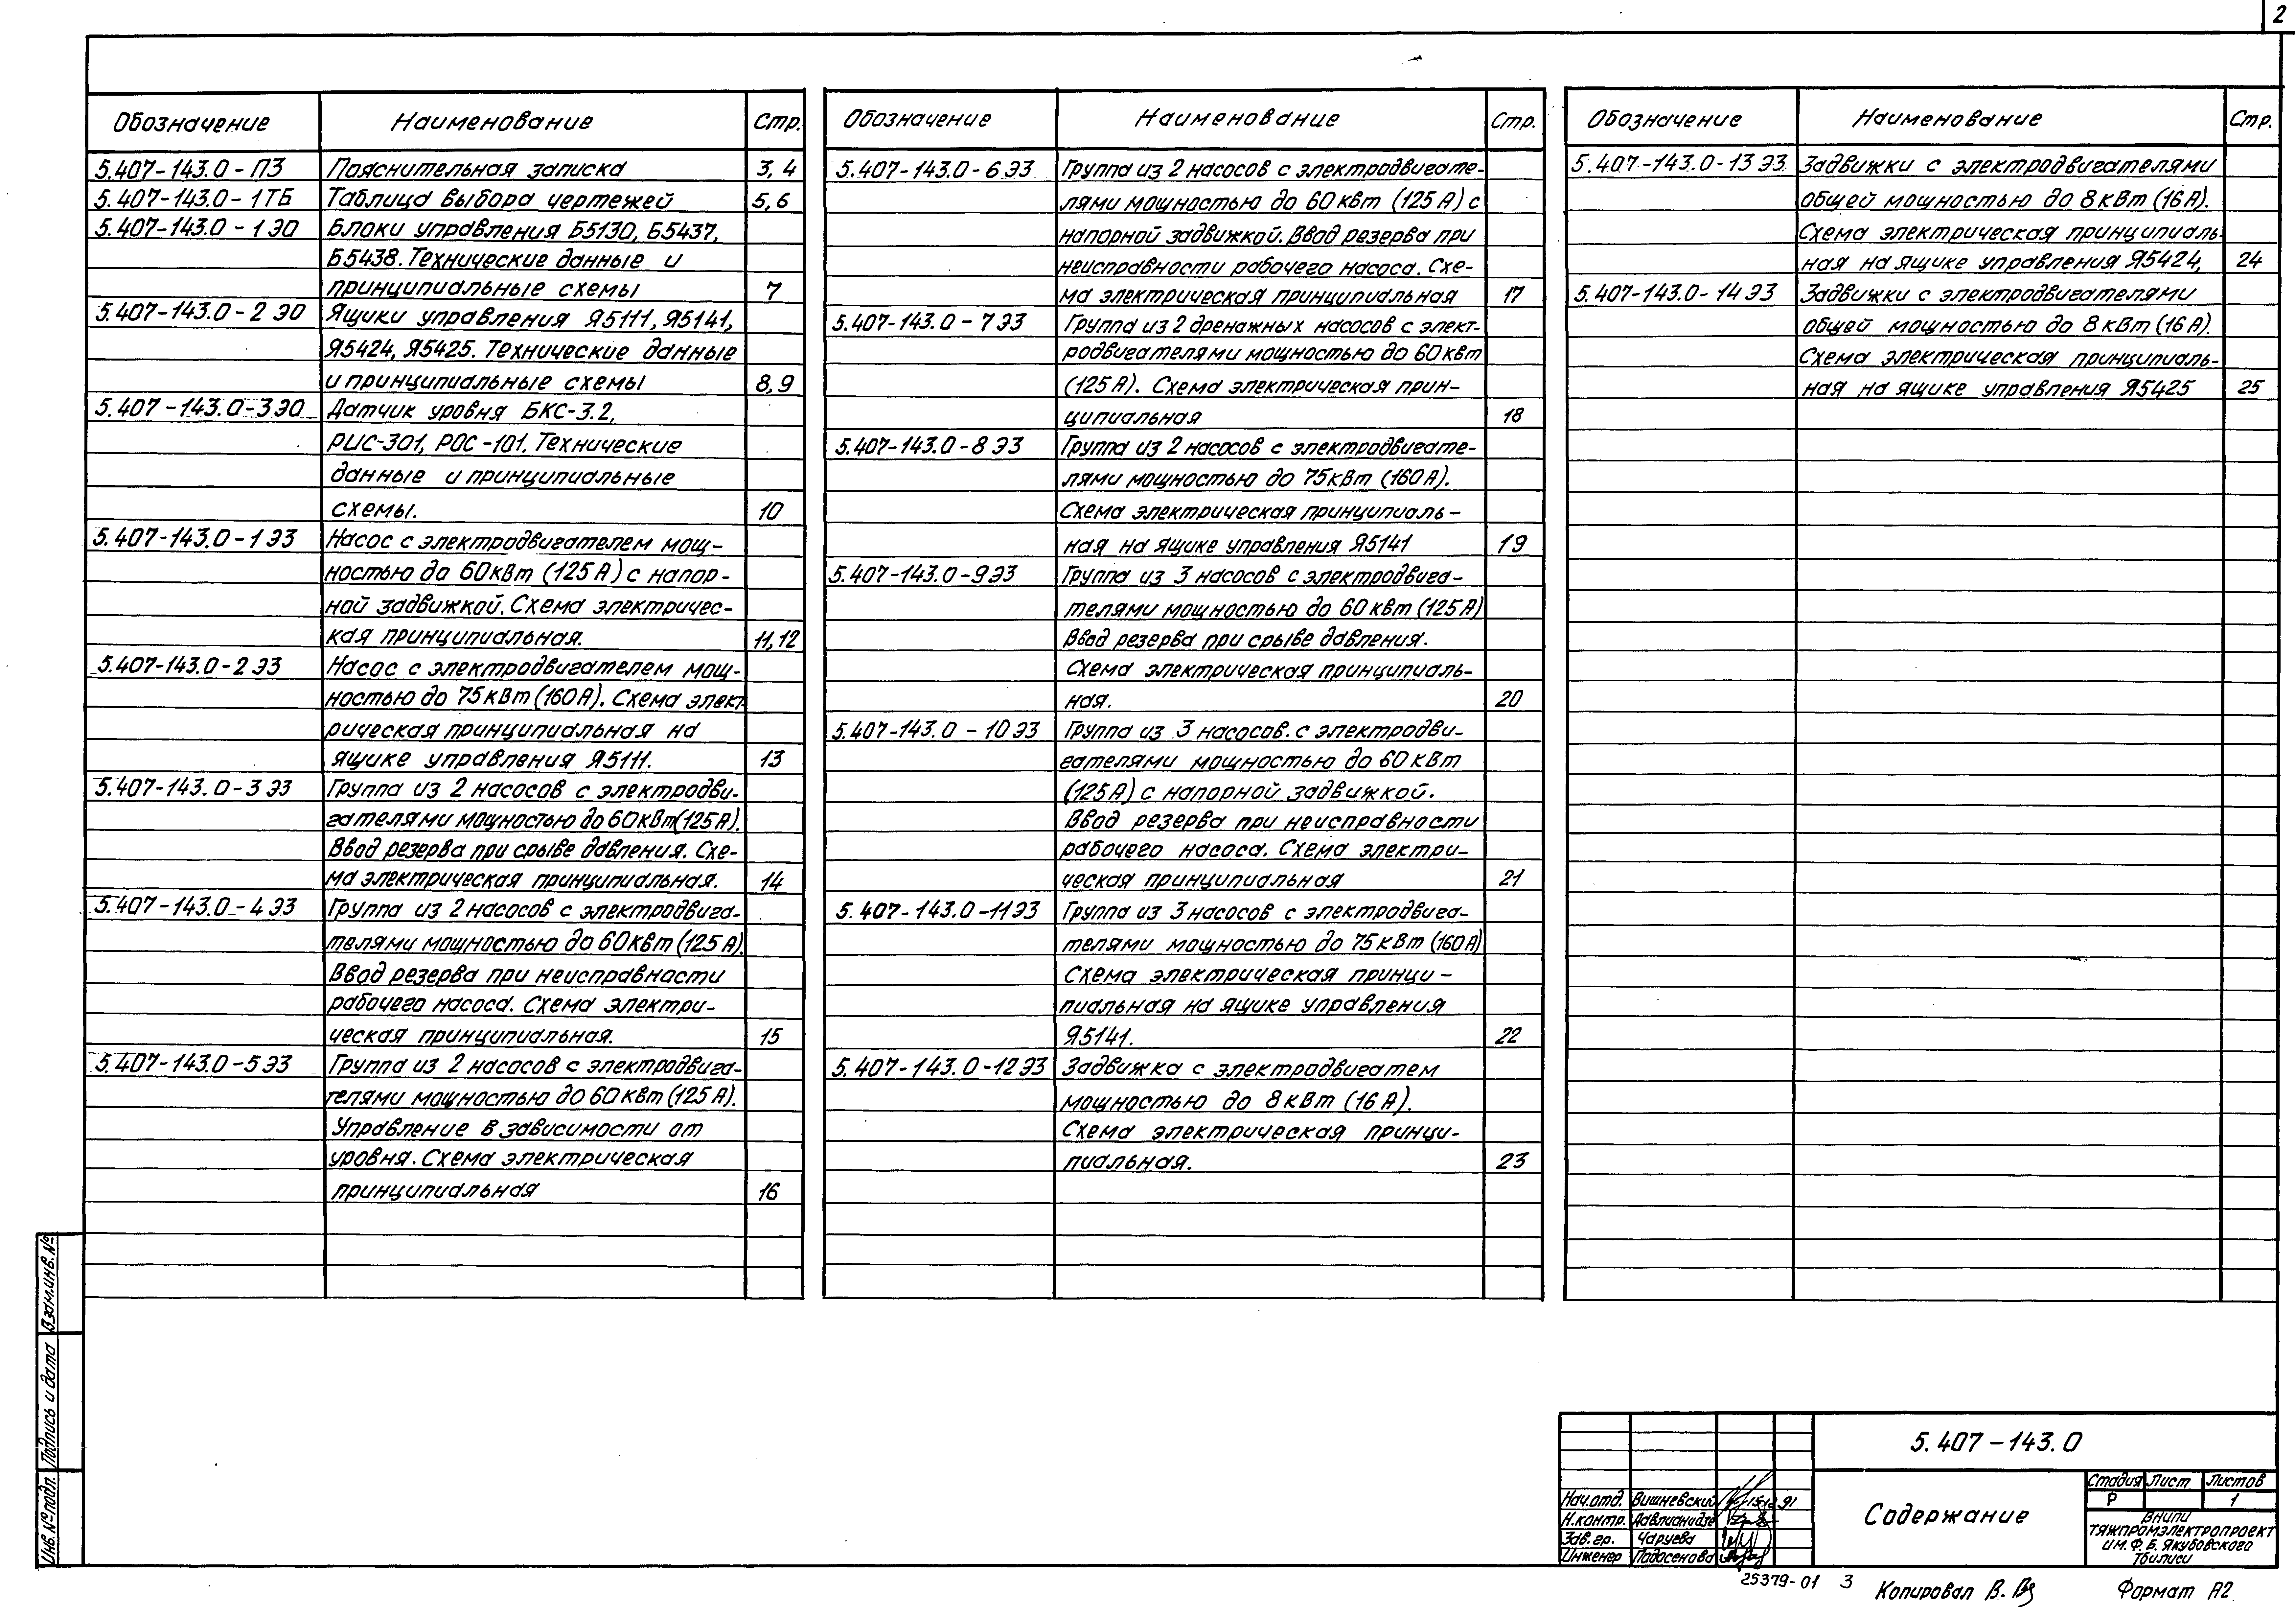 2
Обозначение Наименование Стр.
5.407-143.0-ПЗ Пояснительная записка 3,4
5.407-143.0-1ТБ Таблица выбора чертежей 5,6
5.407-143.0-1ЭО Блоки управления Б5130, Б5437,
Б5438. Технические данные и
принципиальные схемы 7
5.407-143.0-2ЭО Ящики управления Я5111, Я5141,
Я5424, Я5425. Технические данные
и принципиальные схемы 8,9
5.407-143.0-3ЭО Датчик уровня БКС-3.2,
РИС-301, РОС-101. Технические
данные и принципиальные
схемы. 10
5.407-143.0-1ЭЗ Насос с электродвигателем мощ-
ностью до 60кВт (125А) с напор-
ной задвижкой. Схема электричес-
кая принципиальная. 11,12
5.407-143.0-2ЭЗ Насос с электродвигателем мощ-
ностью до 75кВт (160А). Схема элект-
рическая принципиальная на
ящике управления Я5111. 13
5.407-143.0-3ЭЗ Группа из 2 насосов с электродви-
гателями мощностью до 60кВт(125А).
Ввод резерва при срыве давления. Схе-
ма электрическая принципиальная. 14
5.407-143.0-4ЭЗ Группа из 2 насосов с электродвига-
телями мощностью до 60кВт (125А).
Ввод резерва при неисправности
рабочего насоса. Схема электри-
ческая принципиальная. 15
5.407-143.0-5ЭЗ Группа из 2 насосов с электродвига-
телями мощностью до 60кВт (125А).
Управление в зависимости от
уровня. Схема электрическая
принципиальная 16
Обозначение Наименование Стр.
5.407-143.0-6ЭЗ Группа из 2 насосов с электродвигате-
лями мощностью до 60кВт (125А) с
напорной задвижкой. Ввод резерва при
неисправности рабочего насоса. Схе-
ма электрическая принципиальная 17
5.407-143.0-7ЭЗ Группа из 2 дренажных насосов с элект-
родвигателями мощностью до 60кВт
(125А). Схема электрическая прин-
ципиальная 18
5.407-143.0-8ЭЗ Группа из 2 насосов с электродвигате-
лями мощностью до 75кВт (160А).
Схема электрическая принципиаль-
ная на ящике управления Я5141 19
5.407-143.0-9ЭЗ Группа из 3 насосов с электродвига-
телями мощностью до 60кВт (125А)
Ввод резерва при срыве давления.
Схема электрическая принципиаль-
ная. 20
5.407-143.0-10ЭЗ Группа из 3 насосов. с электродви-
гателями мощностью до 60кВт
(125А) с напорной задвижкой.
Ввод резерва при неисправности
рабочего насоса. Схема электри-
ческая принципиальная 21
5.407-143.0-11ЭЗ Группа из 3 насосов с электродвига-
телями мощностью до 75кВт (160А)
Схема электрическая принци-
пиальная на ящике управления
Я5141. 22
5.407-143.0-12ЭЗ Задвижка с электродвигатем
мощностью до 8кВт (16А).
Схема электрическая принци-
пиальная. 23
Обозначение Наименование Стр.
5.407-143.0-13ЭЗ Задвижки с электродвигателями
общей мощностью до 8кВт (16А).
Схема электрическая принципиаль-
ная на ящике управления Я5424, 24
5.407-143.0-14ЭЗ Задвижки с электродвигателями
общей мощностью до 8кВт (16А).
Схема электрическая принципиаль-
ная на ящике управления Я5425 25
Взам.инв.№
Подпись и дата
Инв.№подл.
5.407-143.0
Содержание
Стадия Лист Листов
Р 1
Нач.отд. Вишневский
Н.контр. Давлианидзе
Зав.гр. Чаруева
Инженер Подосенова
ВНИПИ
ТЯЖПРОМЭЛЕКТРОПРОЕКТ
им. Ф.Б. Якубовского
Тбилиси
25379-01 3
Копировал В.
Формат А2